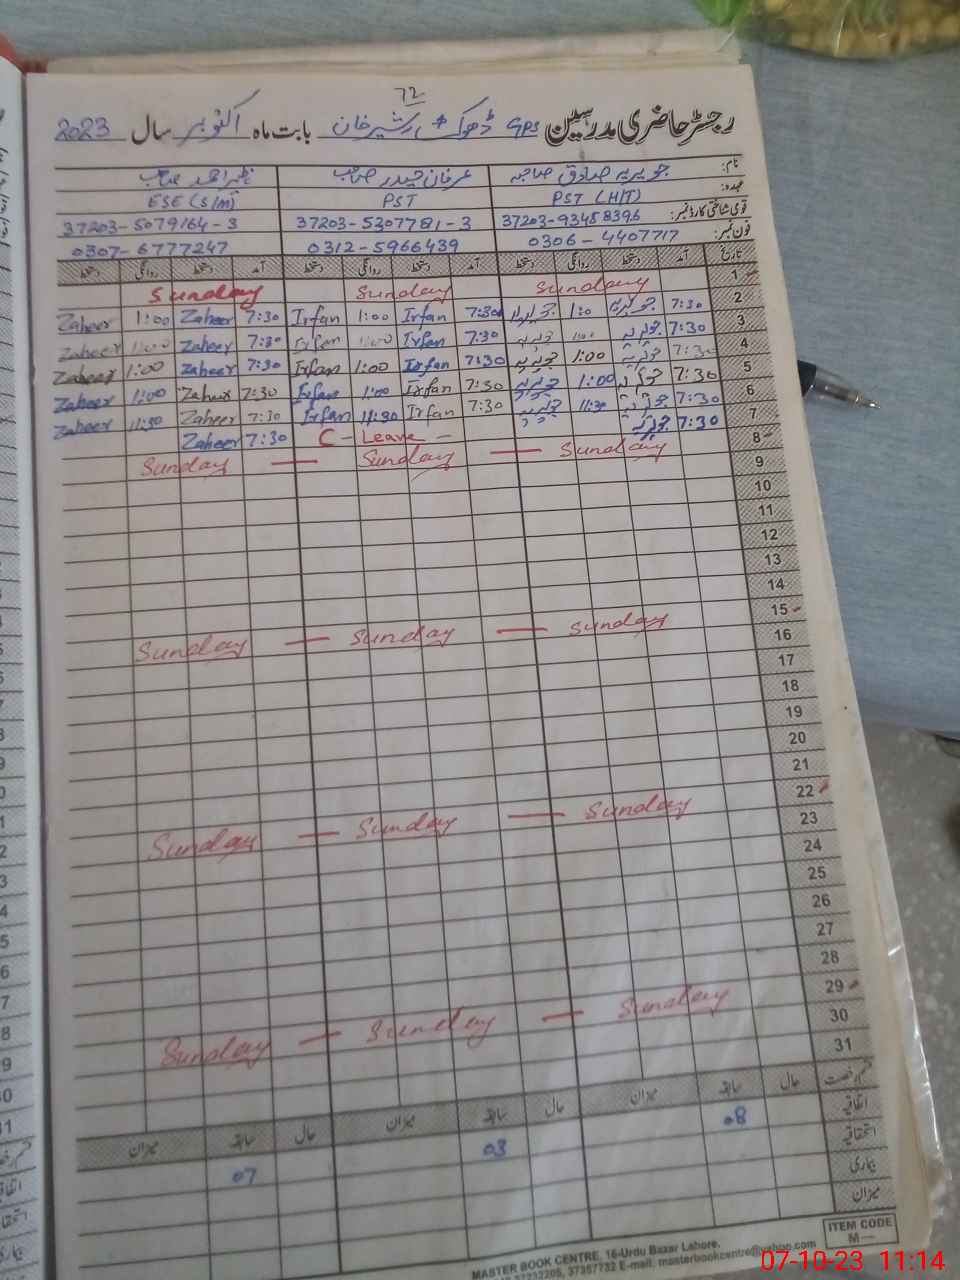 72
رجسٹر حاضری مدرسین GPS ڈھوک شیر خان بابت ماہ اکتوبر سال 2023
نام: جویریہ صادق صاحبہ عرفان حیدر صاحب ظہیر احمد صاحب
عہدہ: PST (H/T) PST ESE (S/M)
قومی شناختی کارڈ نمبر: 37203-93458396 37203-5307781-3 37203-5079164-3
فون نمبر: 0306-4407717 0312-5966439 0307-6777247
تاریخ آمد دستخط روانگی دستخط آمد دستخط روانگی دستخط آمد دستخط روانگی دستخط
1 Sunday Sunday Sunday
2 7:30 جویریہ 1:0 جویریہ 7:30 Irfan 1:00 Irfan 7:30 Zaheer 1:00 Zaheer
3 7:30 جویریہ 1:00 جویریہ 7:30 Irfan 1:00 Irfan 7:30 Zaheer 1:00 Zaheer
4 7:30 جویریہ 1:00 جویریہ 7:30 Irfan 1:00 Irfan 7:30 Zaheer 1:00 Zaheer
5 7:30 جویریہ 1:00 جویریہ 7:30 Irfan 1:00 Irfan 7:30 Zaheer 1:00 Zaheer
6 7:30 جویریہ 11:30 جویریہ 7:30 Irfan 11:30 Irfan 7:30 Zaheer 11:30 Zaheer
7 7:30 جویریہ C - Leave - 7:30 Zaheer
8 Sunday — Sunday — Sunday
9
10
11
12
13
14
15 Sunday — Sunday — Sunday
16
17
18
19
20
21
22 Sunday — Sunday — Sunday
23
24
25
26
27
28
29 Sunday — Sunday — Sunday
30
31
قسم رخصت حال سابقہ میزان حال سابقہ میزان حال سابقہ میزان
اتفاقیہ 08 03 07
استحقاقیہ
بیماری
میزان
ITEM CODE
M—
MASTER BOOK CENTRE, 16-Urdu Bazar Lahore.
37232205, 37357732 E-mail: masterbookcentre@yahoo.com
07-10-23 11:14